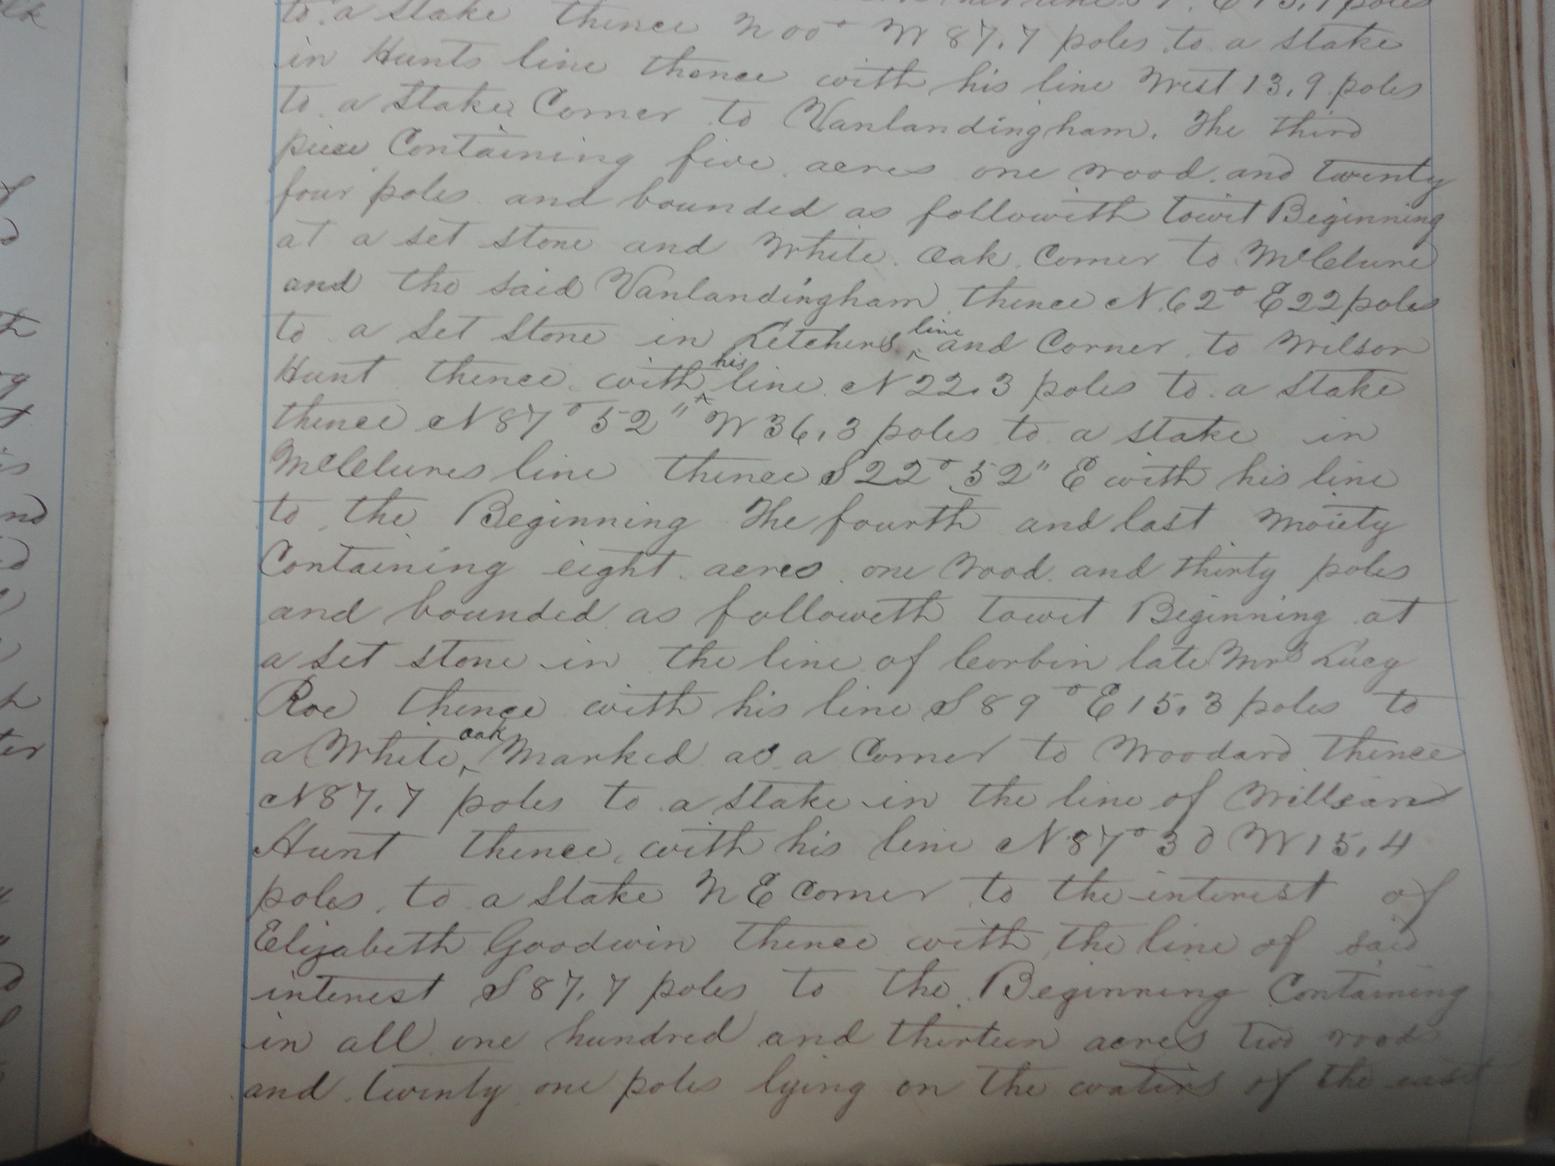 to a stake thence N 00° W 87.7 poles to a stake
in Hunts line thence with his line West 13.9 poles
to a stake Corner to Vanlandingham. The third
piece Containing five acres one rood and twenty
four poles and bounded as followeth towit Beginning
at a set stone and White Oak Corner to McClure
and the said Vanlandingham thence N. 62° E 22 poles
to a Set Stone in Letchers line and Corner to Wilson
Hunt thence with his line N 22.3 poles to a stake
thence N 87° 52" W 36.3 poles to a stake in
McClures line thence S 22° 52" E with his line
to the Beginning The fourth and last moiety
Containing eight acres one rood and thirty poles
and bounded as followeth towit Beginning at
a Set stone in the line of Corbin late Mrs Lucy
Roe thence with his line S 89° E 15.3 poles to
a White oak Marked as a Corner to Woodard thence
N 87.7 poles to a stake in the line of William
Hunt thence with his line N 87° 30 W 15.4
poles to a Stake N E corner to the interest of
Elizabeth Goodwin thence with the line of said
interest S 87.7 poles to the Beginning Containing
in all one hundred and thirteen acres two roods
and twenty one poles lying on the waters of the east